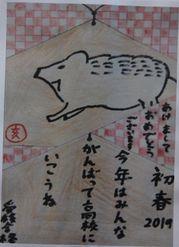 初春
2019
あけまして
おめでとう
ございます
今年はみんな
がんばって高校に
いこうね
亥